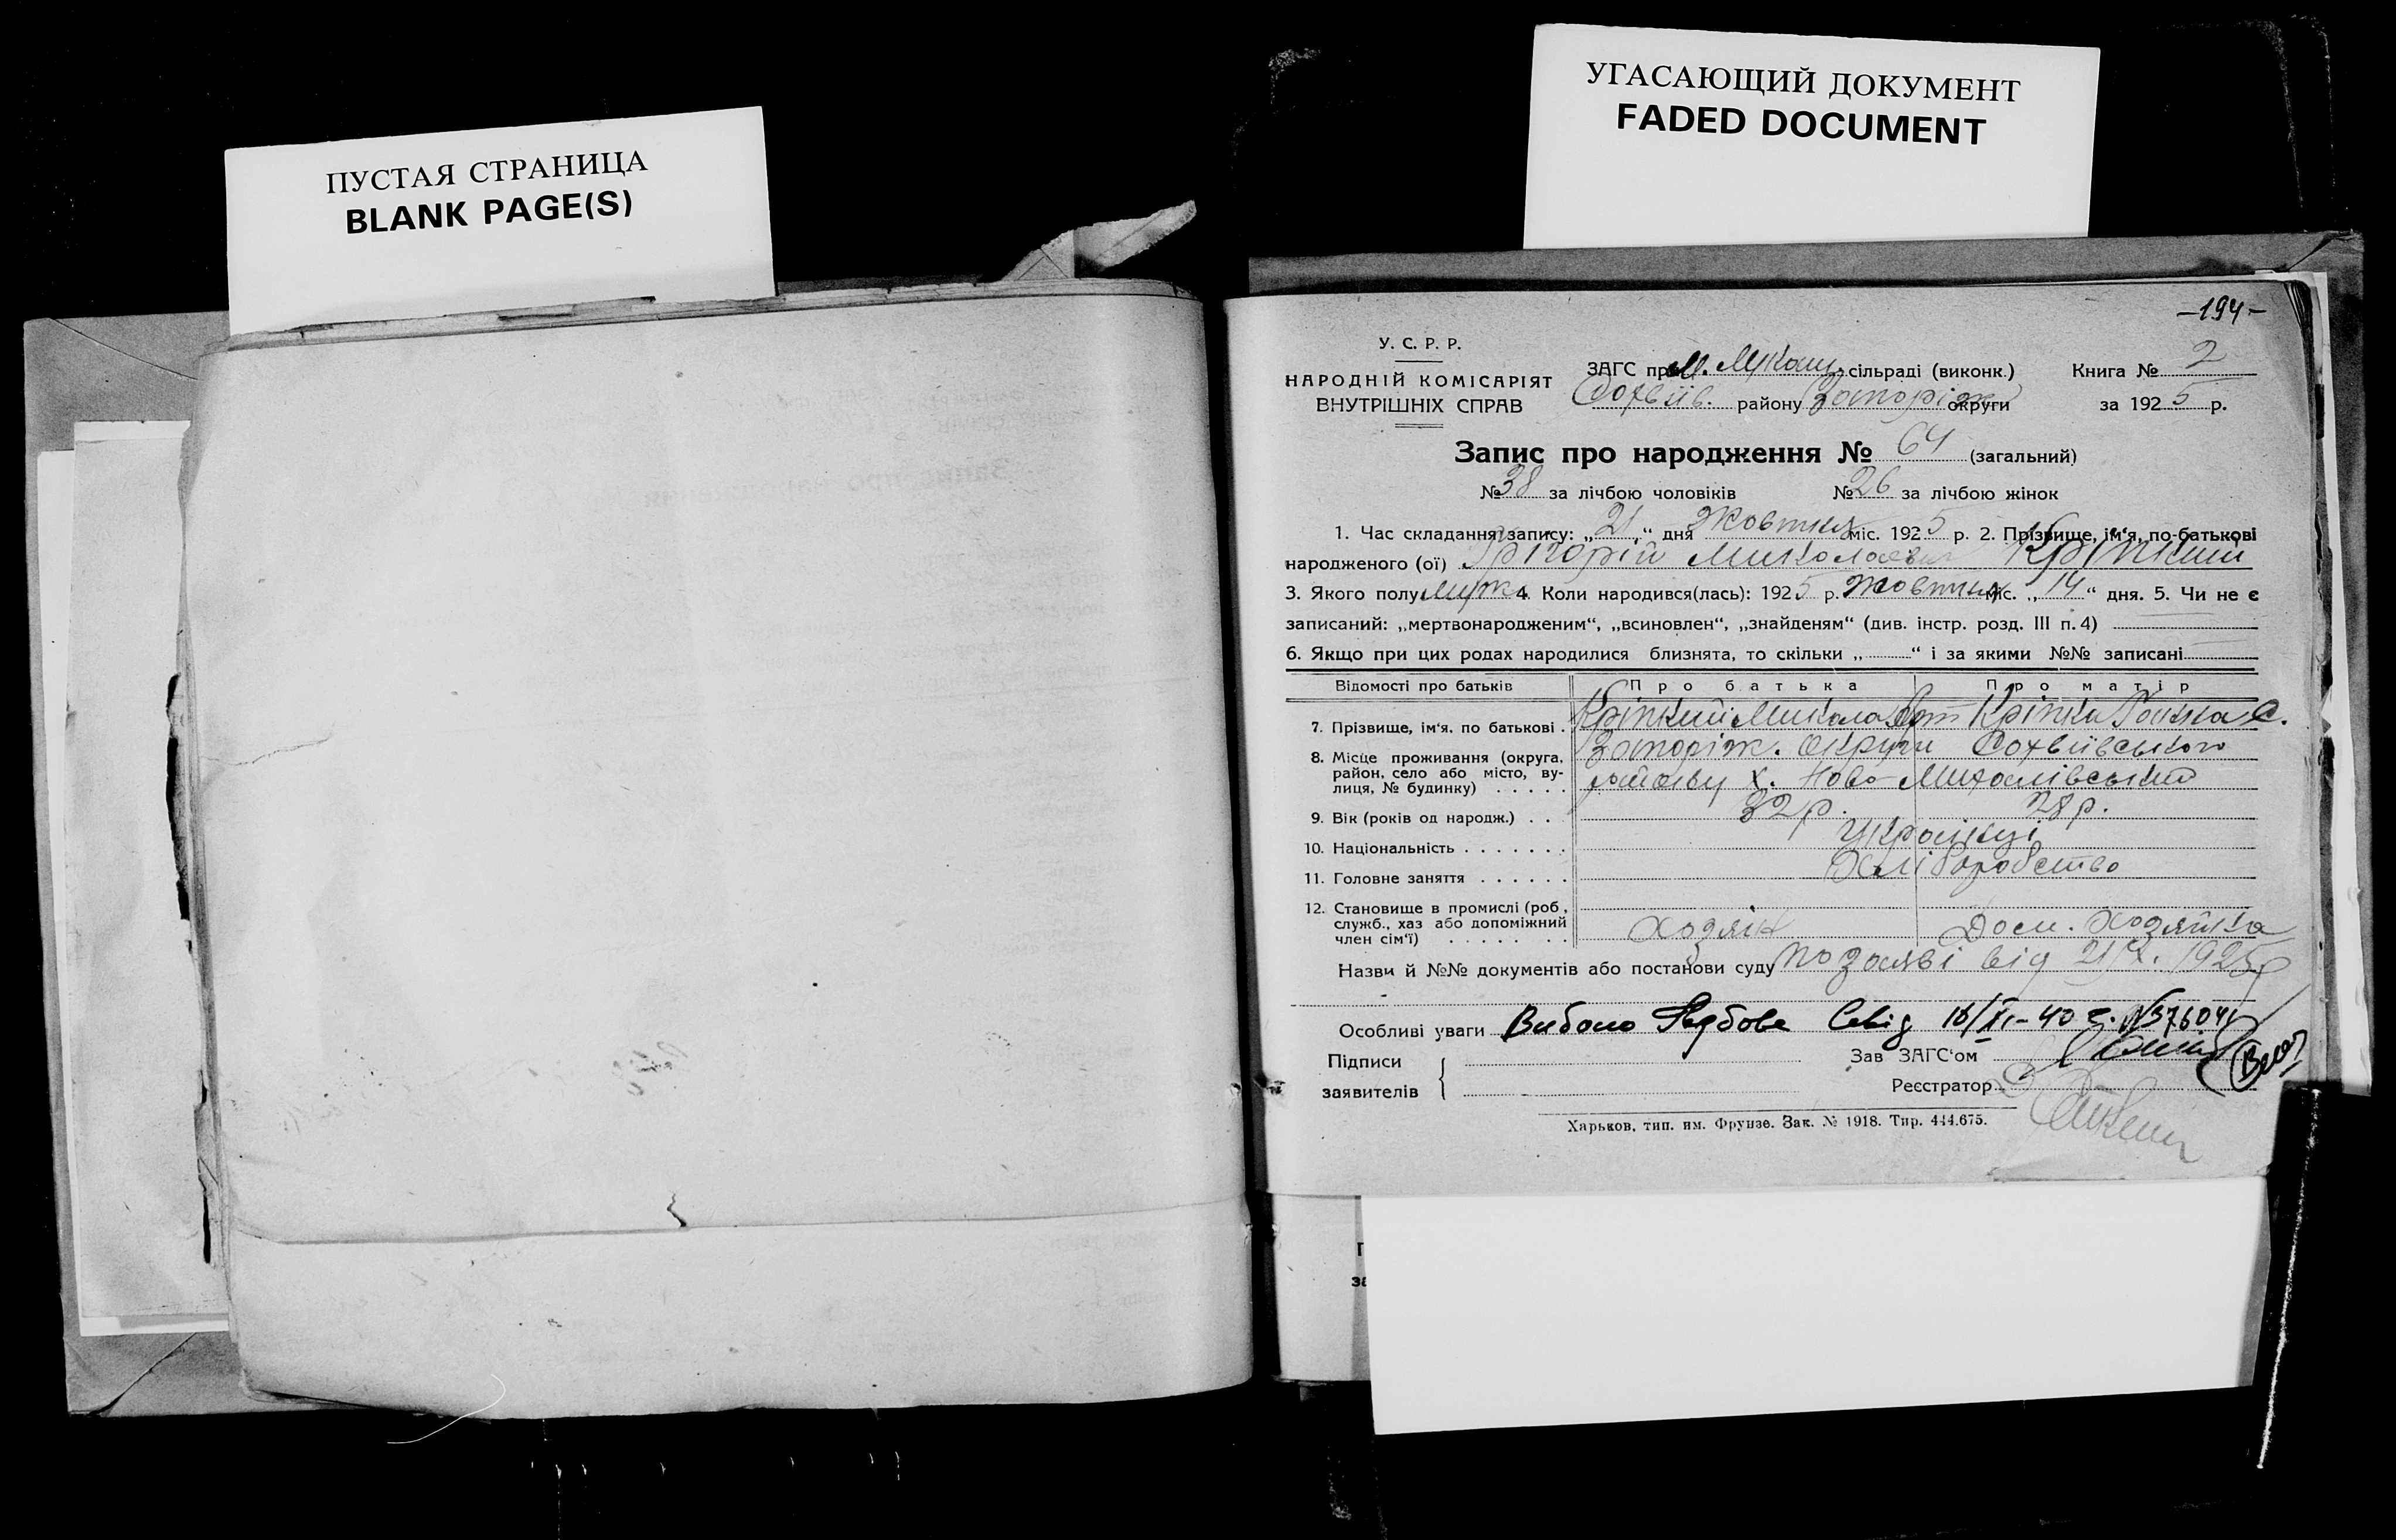 ПУСТАЯ СТРАНИЦА
BLANK PAGE(S)
УГАСАЮЩИЙ ДОКУМЕНТ
FADED DOCUMENT
-194-
У. С. Р. Р.
НАРОДНІЙ КОМІСАРІЯТ
ВНУТРІШНІХ СПРАВ
ЗАГС при сільраді (виконк.) Книга № 2
району Запоріж округи за 1925 р.
Запис про народження № 64 (загальний)
№ 38 за лічбою чоловіків № 26 за лічбою жінок
1. Час складання запису: „21“ дня Жовтня міс. 1925 р. 2. Прізвище, ім'я, по-батькові
народженого (ої) Грігорій Миколаєв Кріпкий
3. Якого полу муж 4. Коли народився(лась): 1925 р. Жовтня міс. „14“ дня. 5. Чи не є
записаний: „мертвонародженим“, „всиновлен“, „знайденям“ (див. інстр. розд. III п. 4)
6. Якщо при цих родах народилися близнята, то скільки „ “ і за якими №№ записані
Відомості про батьків Про батька Про матір
7. Прізвище, ім'я, по батькові . Кріпкий Микола Кріпка С.
8. Місце проживання (округа, Запоріж. округи
район, село або місто, ву- району х. Ново-Михалівський
лиця, № будинку) . . . . .
9. Вік (років од народж.) . . . 32 р. 28 р.
10. Національність . . . . . . . Українці
11. Головне заняття . . . . . . Хліборобство
12. Становище в промислі (роб.,
служб., хаз або допоміжний Хозяін Дом. Хозяйка
член сім'ї) . . . . . . .
Назви й №№ документів або постанови суду по заяві від 21/X. 1925 р
Особливі уваги 16/XI-40 г. №
Підписи Зав ЗАГС'ом
заявителів Реєстратор
Харьков, тип. им. Фрунзе. Зак. № 1918. Тир. 444.675.